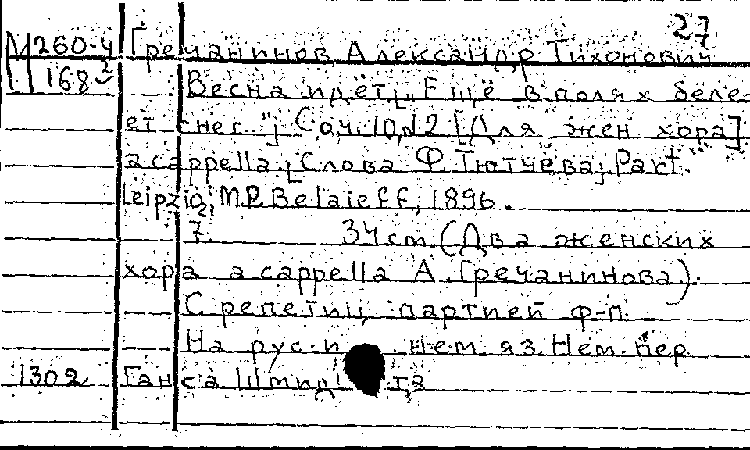 27
М 260-4 Гречанинов Александр Тихонович
168 2 Весна идёт „Ещё в полях беле-
ет снег..."; Соч. 10, №2 [Для жен хора]
a cappella. [Слова Ф. Тютчева]. Part.
Leipzig, M.P. Belaieff, 1896.
7. 34 cm. (Два женских
хора a cappella А. Гречанинова).
С репетиц. партией ф-п.
На рус. и нем. яз. Нем. пер.
1302 Ганса Шмидта